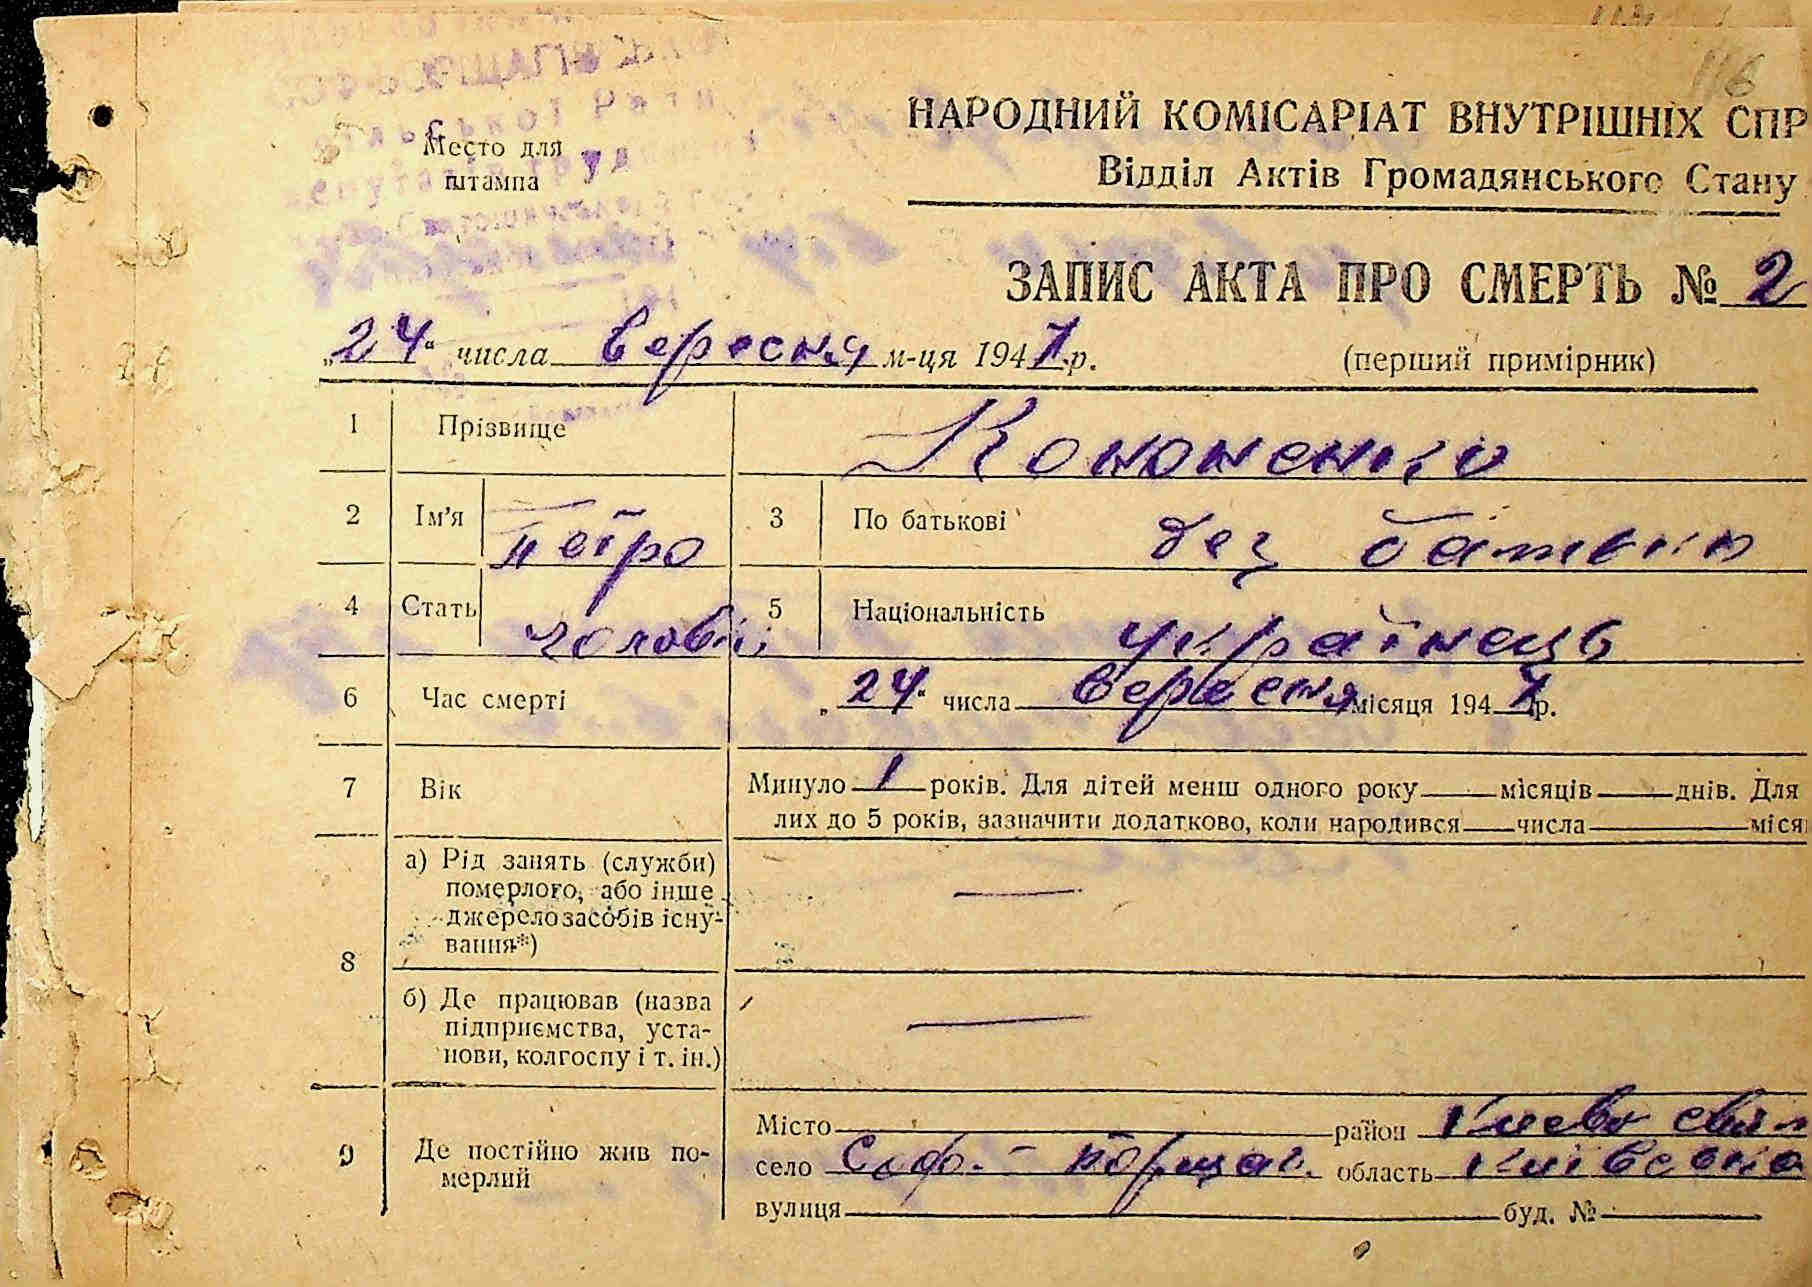 116
НАРОДНИЙ КОМІСАРІАТ ВНУТРІШНІХ СПР
Место для
штампа
Відділ Актів Громадянського Стану
ЗАПИС АКТА ПРО СМЕРТЬ № 2
„24“ числа вересня м-ця 1941 р.
(перший примірник)
1 Прізвище Кононенко
2 Ім'я Петро 3 По батькові без батька
4 Стать чолові 5 Національність українець
6 Час смерті „24“ числа вересня місяця 1941 р.
7 Вік Минуло 1 років. Для дітей менш одного року місяців днів. Для
лих до 5 років, зазначити додатково, коли народився числа міся
8 а) Рід занять (служби)
померлого, або інше
джерело засобів існу-
вання*) —
б) Де працював (назва
підприємства, уста-
нови, колгоспу і т. ін.) —
9 Де постійно жив по-
мерлий
Місто район Києво Свя
село Соф. - Борщаг. область Київська
вулиця буд. №